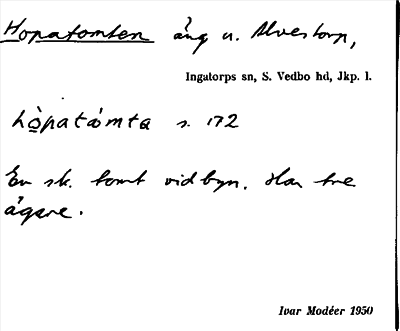 Hopatomten äng u. Alvestorp,
Ingatorps sn, S. Vedbo hd, Jkp. l.
hò̲patåmta s. 172
En sk. tomt vid byn. Har tre
ägare.
Ivar Modéer 1950